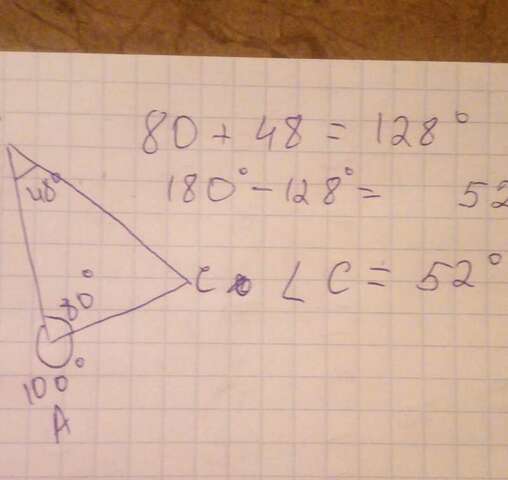 80 + 48 = 128°
180° - 128° = 52
48°
80°
C ∠ C = 52°
100°
A